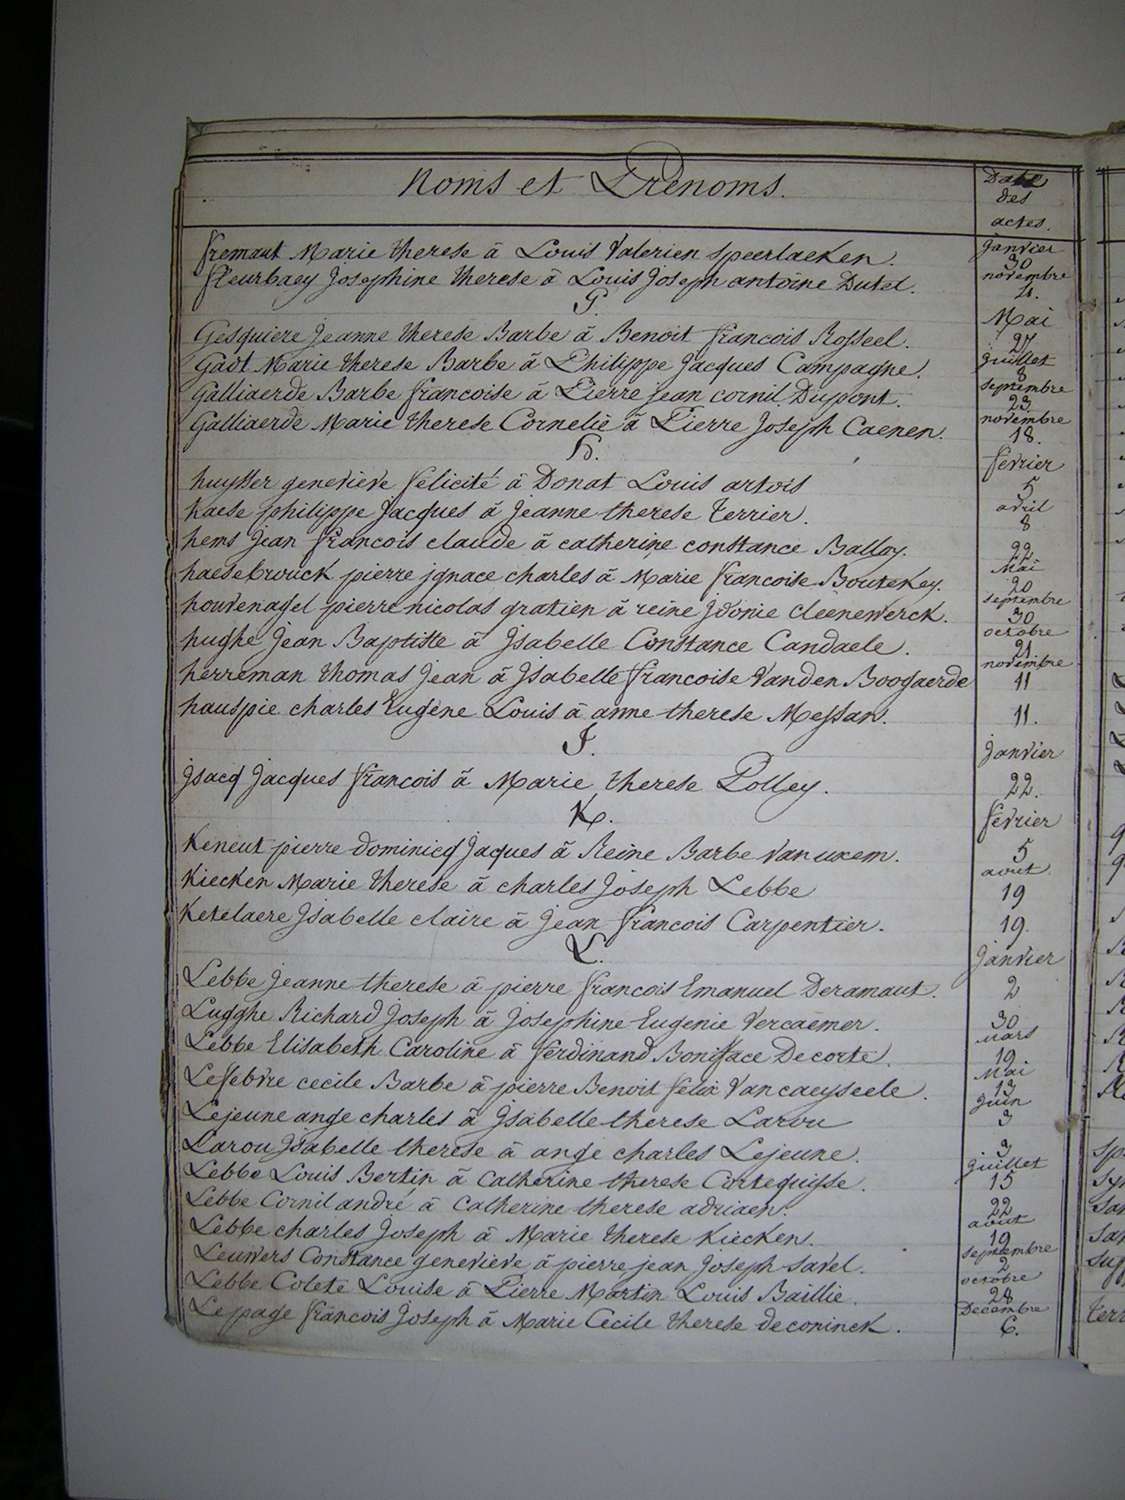 Noms et Prénoms.
Date
des
actes.
fremaut Marie therese à Louis Valerien Speerlaeken. Janvier 30
fleurbaey Josephine therese à Louis Joseph antoine Dutel. novembre 21.
G.
Gesquiere Jeanne therese Barbe à Benoit francois Rosseel. Mai 27
Gadt Marie therese Barbe à Philippe Jacques Campagne. Juillet 8
Galliaerde Barbe francoise à Pierre jean cornil Dupont. septembre 23
Galliaerde Marie therese Cornelie à Pierre Joseph Caenen. novembre 18.
H.
huyster genevieve félicité à Donat Louis artois fevrier 5
Kaese philippe Jacques à Jeanne therese terrier. avril 8
hems jean francois claude à catherine constance Balloy. 22
haesebrouck pierre jgnace charles à Marie francoise Boutekey. Mai 20
houvenagel pierre nicolas gratien à reine jdonie Cleenewerck. septembre 30
hughe Jean Baptiste à Jsabelle Constance Candaele. octobre 21
herreman thomas Jean à Jsabelle francoise Vanden Boogaerde novembre 11
hauspie charles Eugène Louis à anne therese Messan. 11.
J.
Jsacq Jacques francois à Marie therese Polley. Janvier 22.
K.
Keneut pierre dominicq Jaques à Reine Barbe Vanuxem. fevrier 5
Kiecken Marie therese à charles Joseph Lebbe aout 19
Ketelaere Jsabelle claire à Jean francois Carpentier. 19.
L.
Lebbe jeanne therese à pierre francois Emanuel Deramaut. Janvier 2
Lugghe Richard Joseph à Josephine Eugenie Vercaemer. 30
Lebbe Elisabeth Caroline à ferdinand Boniface Decorte. mars 19
Lefebvre cecile Barbe à pierre Benoit félix Vancaeyseele. Mai 13
Lejeune ange charles à Jsabelle therese Larou Juin 3
Larou Jsabelle therese à ange charles Lejeune. 3
Lebbe Louis Bertin à Catherine therese Cortequisse. Juillet 15
Lebbe Cornil andré à Catherine therese adriaen. 22
Lebbe charles Joseph à Marie therese Kiecken. aout 19
Leuwers Constance genevieve à pierre jean Joseph Savel. septembre 2
Lebbe Colete Louise à Pierre Martin Louis Baillie. octobre 28
Lepage francois Joseph à Marie Cecile therese deconinck. Decembre 6.